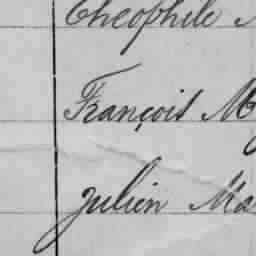 Théophile
François M
Julien Ma